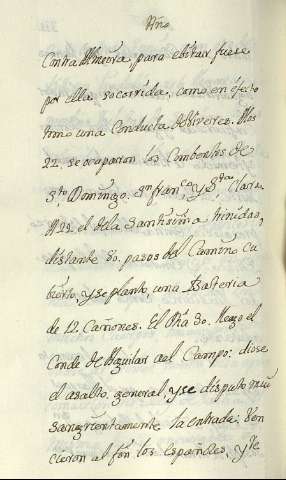 Año
Contra Almeyra para ebitar fuese
por ella socorrida, como en efecto
tomo una Conducta de Viveres. A los
22. se ocuparon los Combentos de
S.to Domingo. S.n Fran.co y S.ta Clara
A 29 el de la Santisima trinidad,
distante 80. pasos del Camino cu
bierto, y se planto, una Bateria
de 12. Cañones. El dia 30. llego el
Conde de Aguilar al Campo: diose
el asalto general, y se disputo mui
sangrientamente la entrada: Ven
cieron al fin los españoles, y se